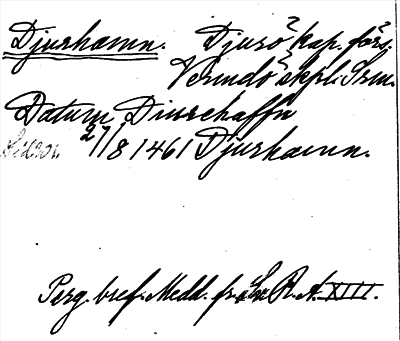 Djurhamn. Djurö kap. förs.
Vermdö skpl. Srm.
Datum Diurehaffn
27/8 1461 Djurhamn.
Perg. bref. Medd. fr. Sv. R. A. XIII.